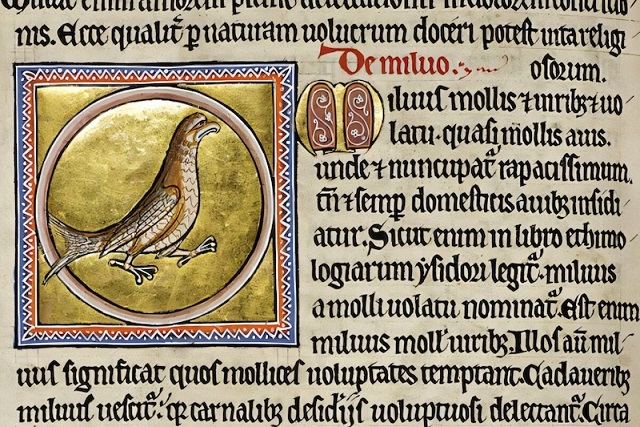 enim amorem
nis. Ecce qualit̃ ꝑ naturam uolucrum doceri potest uita religi
De miluo. osorum.
Miluus mollis ⁊ uiribꝫ ⁊ uo
latu. quasi mollis auis.
unde ⁊ nuncupat᷑ rapacissimum.
tñ ⁊ semꝑ domesticis auibꝫ insidi
atur. Sicut enim in libro ethimo
logiarum ẏsidori legit᷑. miluus
a molli uolatu nominat᷑. Est enim
miluus moll' uiribꝫ. Illos aũ mil
uus significat quos mollices uoluptates temptant. Cadaueribꝫ
miluus uescit᷑. qꝛ carnalibꝫ desid'ijs uoluptuosi delectant᷑. Circa